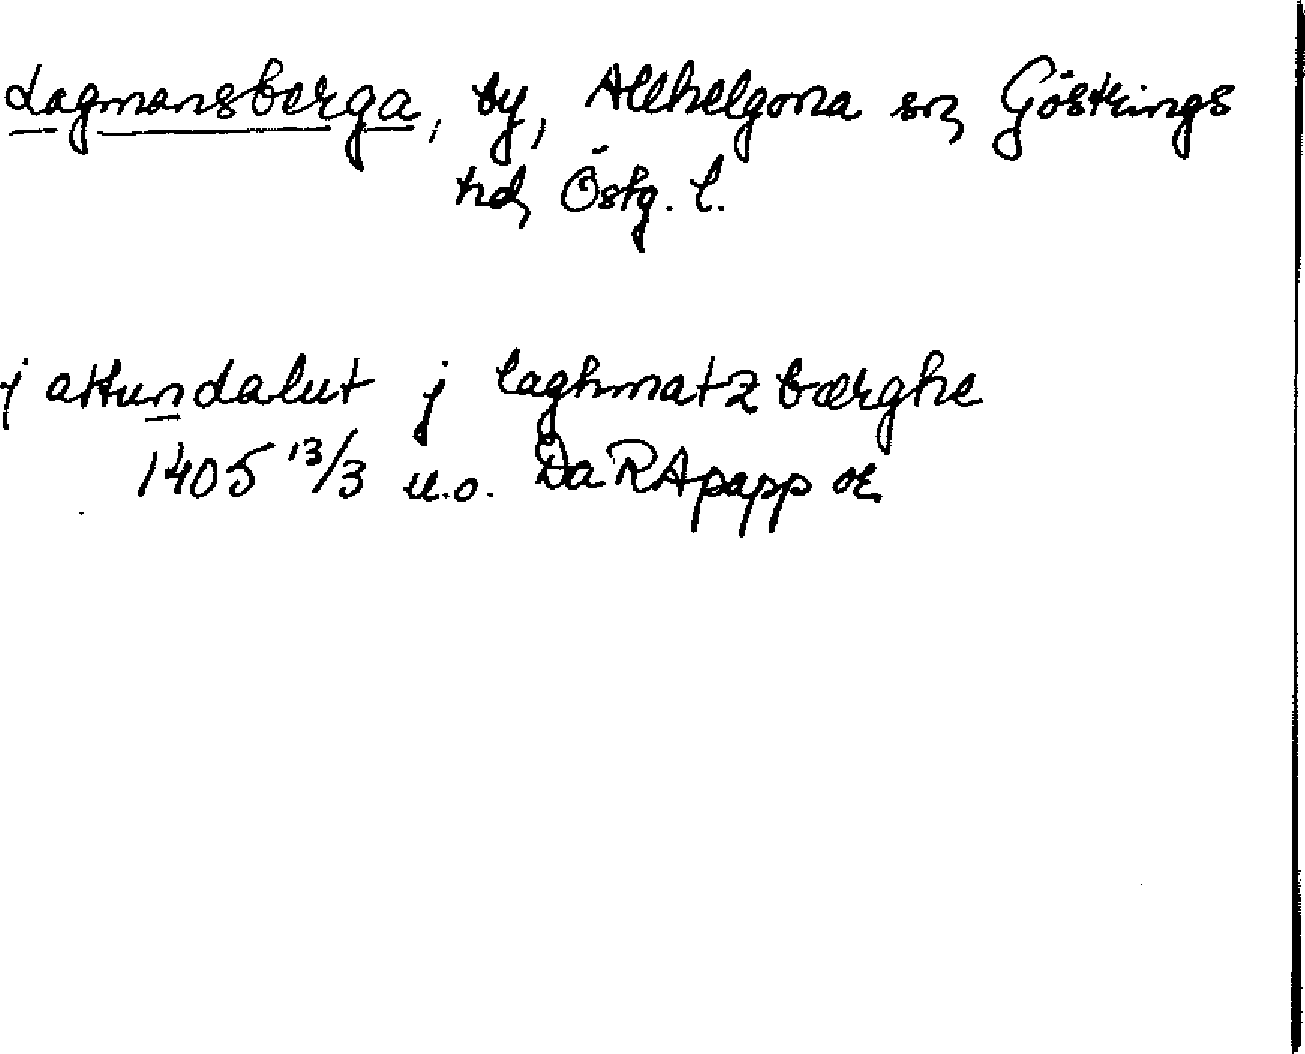 Lagmansberga, by, Allhelgona sn, Göstrings
hd, Östg. l.
j attundalut j laghmatz bærghe
1405 13/3 u.o. Da RApapp or.